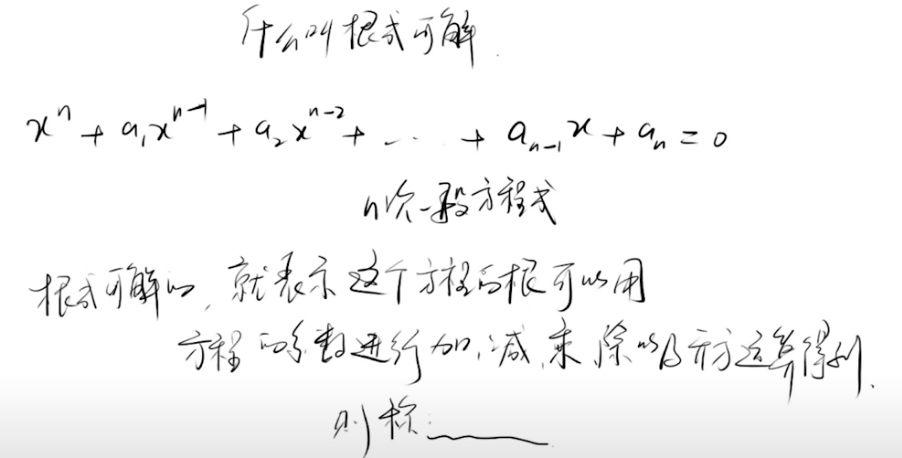 什么叫根式可解.
xⁿ + a₁xⁿ⁻¹ + a₂xⁿ⁻² + ... + aₙ₋₁x + aₙ = 0
n次一般方程式
根式可解的, 就表示这个方程的根可以用
方程的系数进行加、减、乘、除以及开方运算得到.
则称: